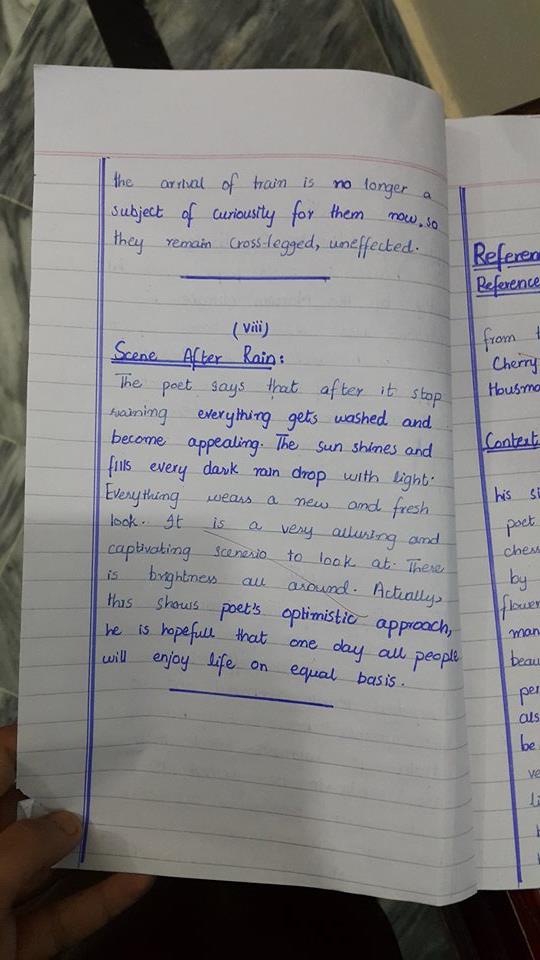 the arrival of train is no longer a
subject of curiousity for them now. so
they remain cross-legged, uneffected.
(viii)
Scene After Rain:
The poet says that after it stop
raining everything gets washed and
become appealing. The sun shines and
fills every dark rain drop with light.
Everything wears a new and fresh
look. It is a very alluring and
captivating scenerio to look at. There
is brightness all around. Actually,
this shows poet's optimistic approach,
he is hopefull that one day all people
will enjoy life on equal basis.
Referen
Reference
from t
Cherry
Housma
Context
his si
poet
chess
by
flower
man
beau
per
als
be
ve
li